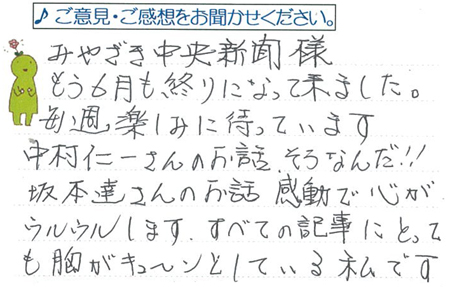 ♪ご意見・ご感想をお聞かせください。
みやざき中央新聞 様
もう6月も、終りになって来ました。
毎週、楽しみに待っています
中村仁一さんのお話、そうなんだ!!
坂本達さんのお話 感動で心が
ウルウルします、すべての記事にとって
も胸がキューンとしている私です